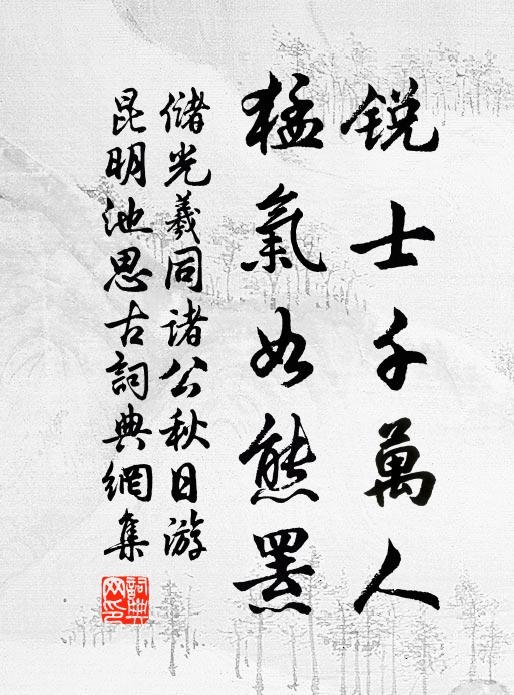 锐士千萬人
猛氣如熊羆
儲光羲同諸公秋日游
昆明池思古詞典網集
詞典